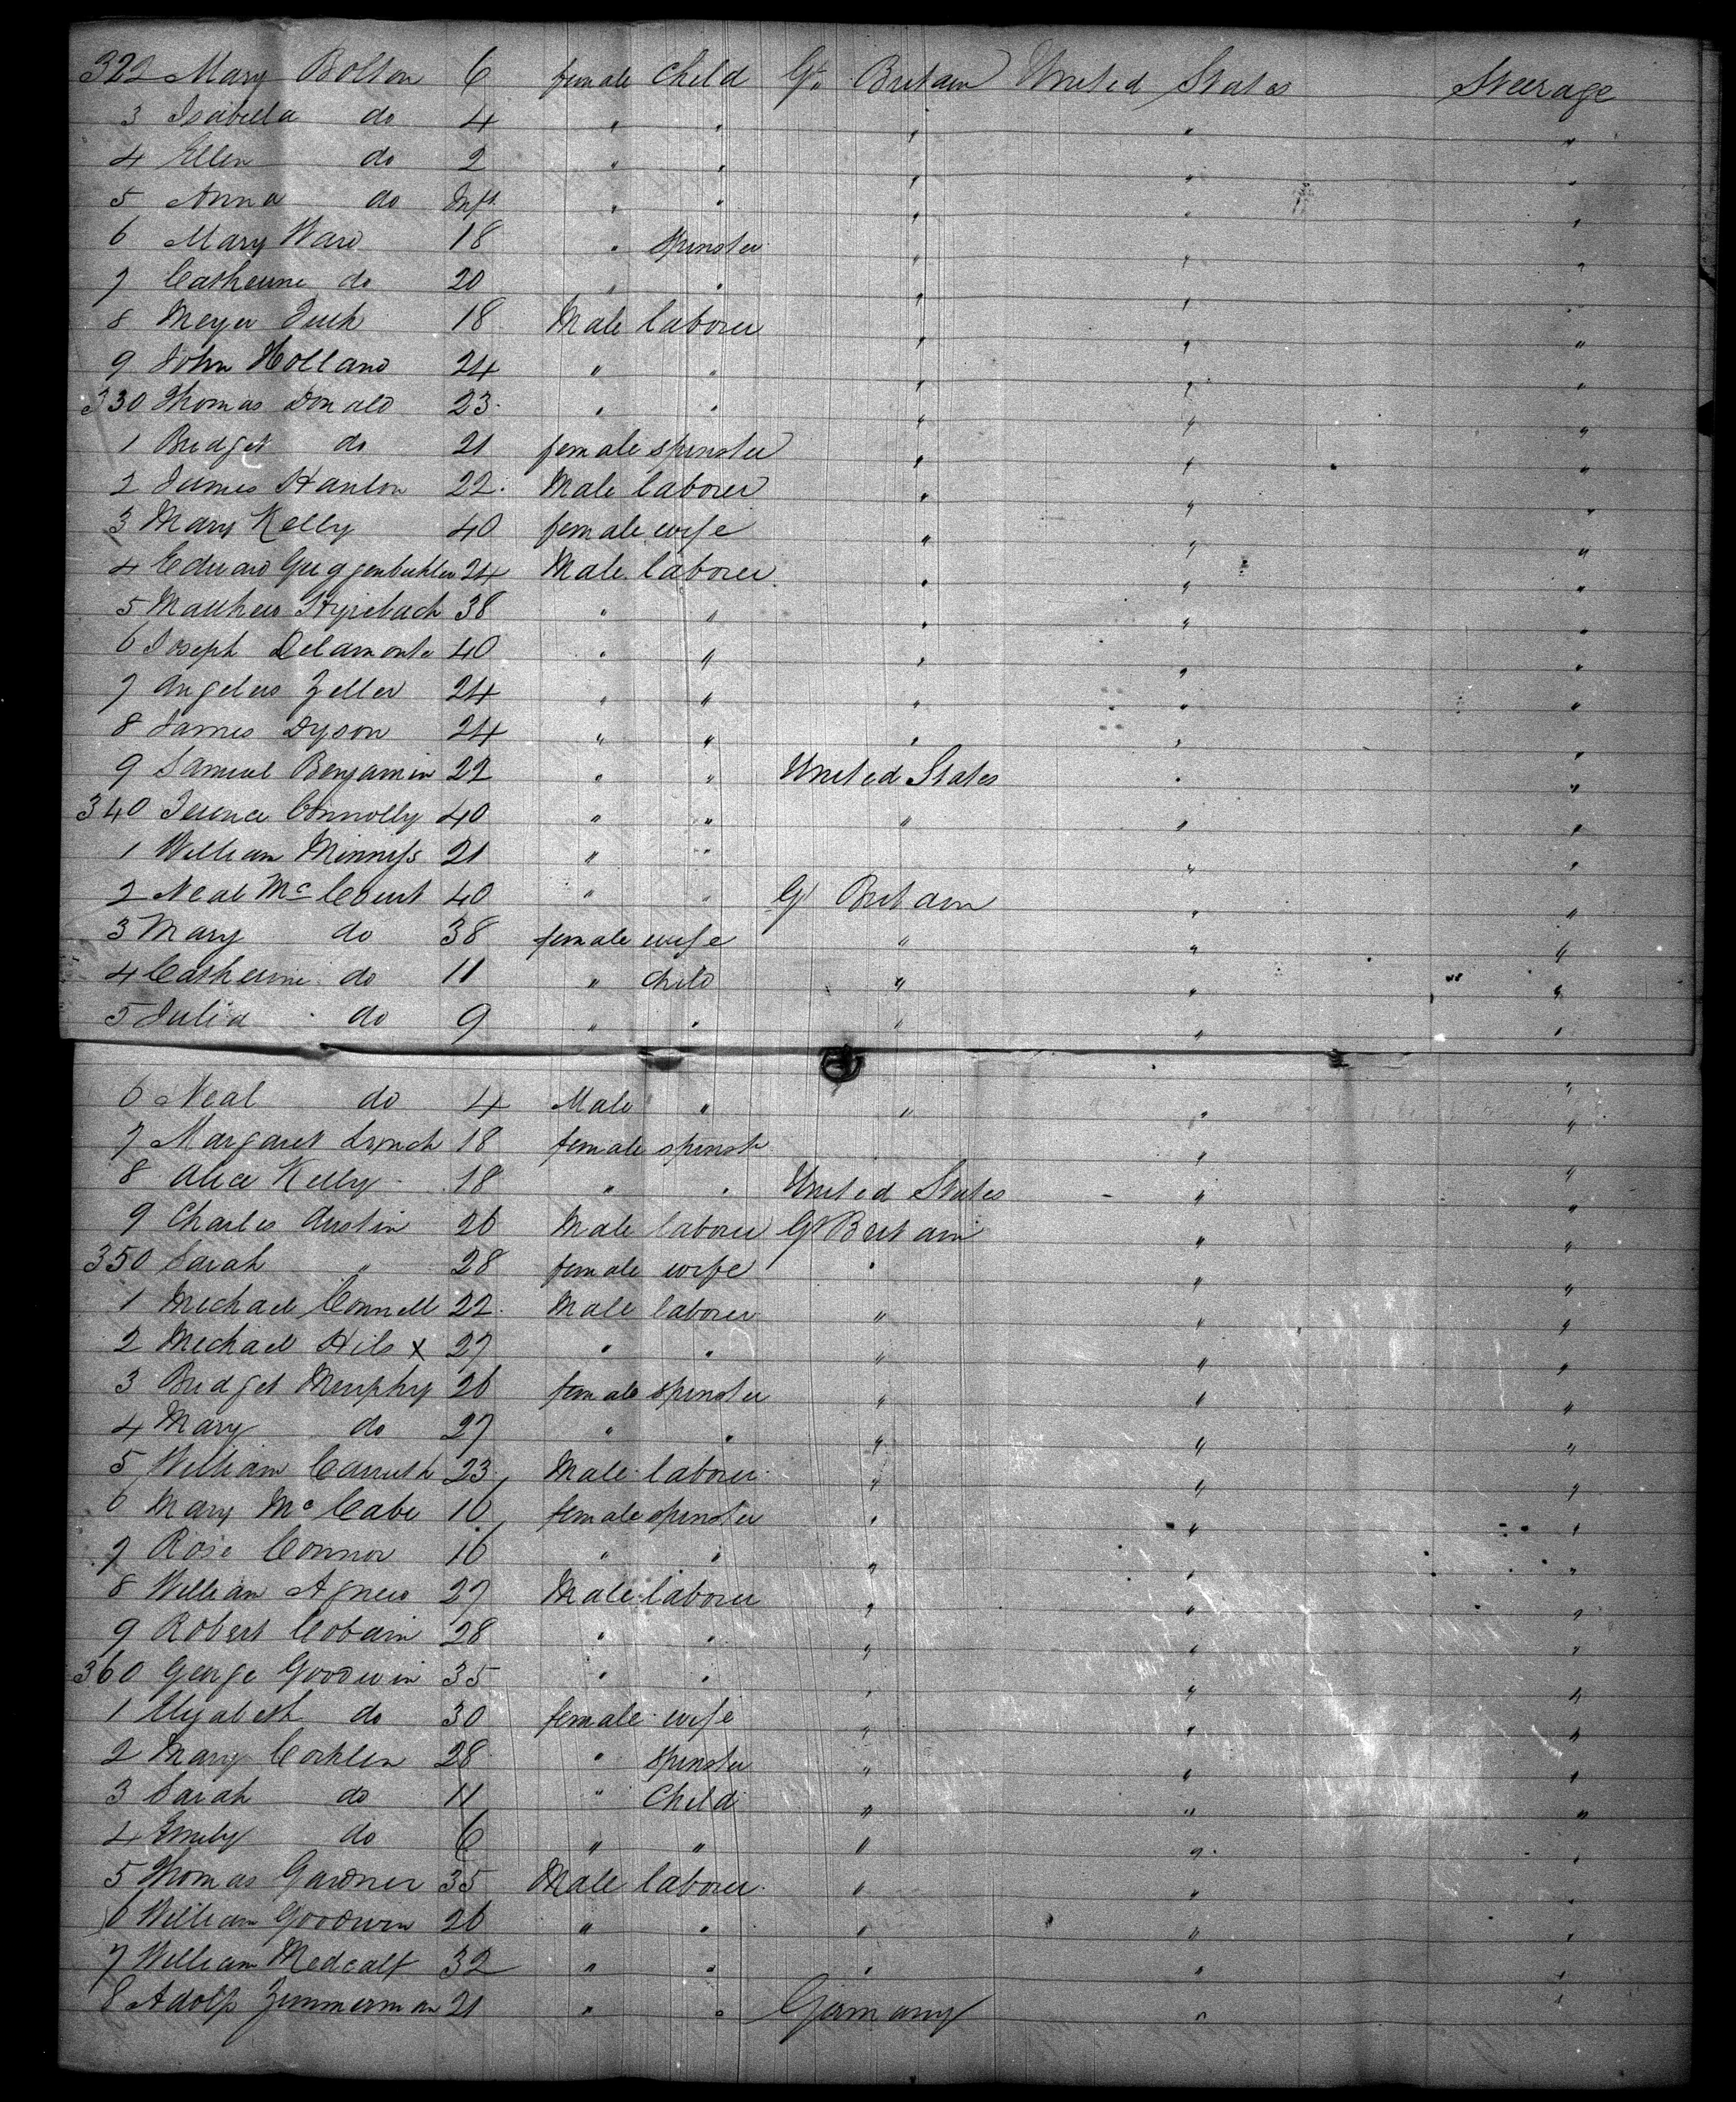 322 Mary Bolton 6 female Child Gt Britain United States Steerage
3 Isabella do 4 " " " " "
4 Ellen do 2 " " " " "
5 Anna do Inft " " " " "
6 Mary Ward 18 " spinster " " "
7 Catherine do 20 " " " " "
8 Meyer 18 Male laborer " " "
9 John Holland 24 " " " " "
330 Thomas Donald 23 " " " " "
1 Bridget do 21 female spinster " " "
2 James Hanlon 22 Male laborer " " "
3 Mary Kelly 40 female wife " " "
4 Edward 24 Male laborer " " "
5 Matthew 38 " " " " "
6 Joseph Delamonte 40 " " " " "
7 Angelus Zeller 24 " " " " "
8 James Dyson 24 " " " " "
9 Samuel Benjamin 22 " " United States " "
340 Terence Connolly 40 " " " " "
1 William Minniss 21 " " " "
2 Neal McCourt 40 " " Gt Britain " "
3 Mary do 38 female wife " " "
4 Catherine do 11 " child " " "
5 Julia do 9 " " " " "
6 Neal do 4 Male " " " "
7 Margaret Lynch 18 female spinstr " "
8 Alice Kelly 18 " " United States " "
9 Charles Austin 26 Male laborer Gt Britain " "
350 Sarah " 28 female wife " " "
1 Michael Connell 22 Male laborer " " "
2 Michael Hils x 27 " " " " "
3 Bridget Murphy 26 female spinster " " "
4 Mary do 27 " " " " "
5 William Carruth 23 Male laborer " " "
6 Mary McCabe 16 female spinster " " "
7 Rose Connor 16 " " " " "
8 William Agnew 27 Male laborer " " "
9 Robert Cobain 28 " " " " "
360 George Goodwin 35 " " " " "
1 Elizabeth do 30 female wife " " "
2 Mary Cochlin 28 " spinster " " "
3 Sarah do 11 " Child " " "
4 Emily do 6 " " " " "
5 Thomas Gardner 35 Male laborer " " "
6 William Goodwin 26 " " " " "
7 William Medcalf 32 " " " " "
8 Adolp Zimmerman 21 " " Germany " "